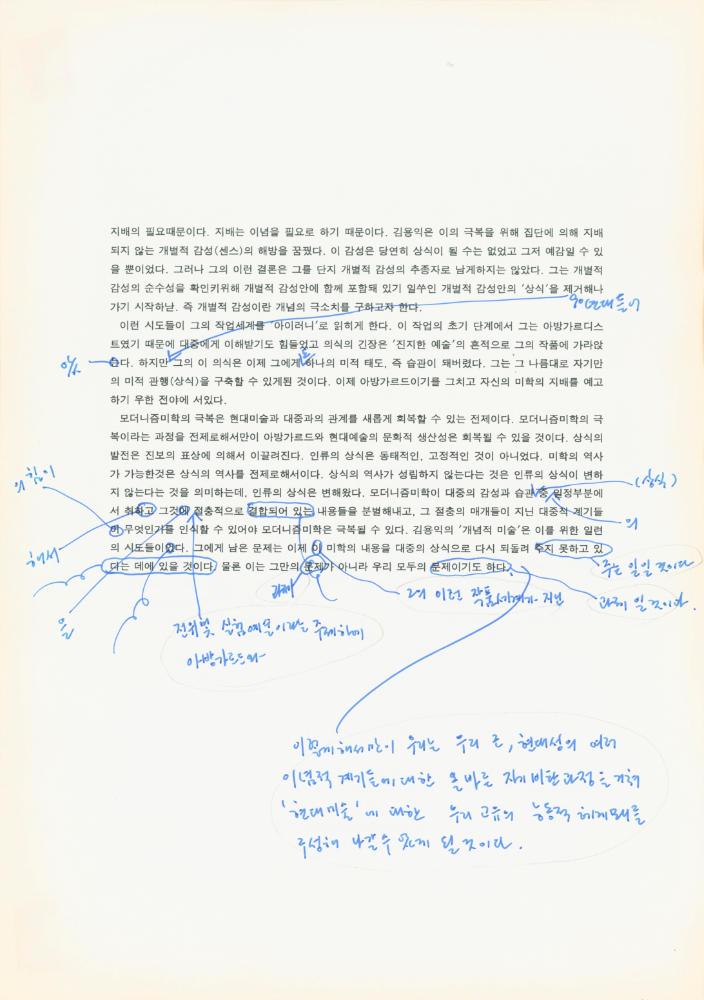 지배의 필요때문이다. 지배는 이념을 필요로 하기 때문이다. 김용익은 이의 극복을 위해 집단에 의해 지배
되지 않는 개별적 감성(센스)의 해방을 꿈꿨다. 이 감성은 당연히 상식이 될 수는 없었고 그저 예감일 수 있
을 뿐이었다. 그러나 그의 이런 결론은 그를 단지 개별적 감성의 추종자로 남게하지는 않았다. 그는 개별적
감성의 순수성을 확인키위해 개별적 감성안에 함께 포함돼 있기 일쑤인 개별적 감성안의 '상식'을 제거해나
가기 시작하낟. 즉 개별적 감성이란 개념의 극소치를 구하고자 한다.
90년대들어
이런 시도들이 그의 작업세계를 '아이러니'로 읽히게 한다. 이 작업의 초기 단계에서 그는 아방가르디스
트였기 때문에 대중에게 이해받기도 힘들었고 의식의 긴장은 '진지한 예술'의 흔적으로 그의 작품에 가라앉
는다. 하지만 그의 이 의식은 이제 그에게 하나의 미적 태도, 즉 습관이 돼버렸다. 그는 그 나름대로 자기만
의 미적 관행(상식)을 구축할 수 있게된 것이다. 이제 아방가르드이기를 그치고 자신의 미학의 지배를 예고
하기 우한 전야에 서있다.
모더니즘미학의 극복은 현대미술과 대중과의 관계를 새롭게 회복할 수 있는 전제이다. 모더니즘미학의 극
복이라는 과정을 전제로해서만이 아방가르드와 현대예술의 문화적 생산성은 회복될 수 있을 것이다. 상식의
발전은 진보의 표상에 의해서 이끌려진다. 인류의 상식은 동태적인, 고정적인 것이 아니었다. 미학의 역사
가 가능한것은 상식의 역사를 전제로해서이다. 상식의 역사가 성립하지 않는다는 것은 인류의 상식이 변하
지 않는다는 것을 의미하는데, 인류의 상식은 변해왔다. 모더니즘미학이 대중의 감성과 습관 중 일정부분에
(상식)
의 힘이
서 취하고 그것에 절충적으로 결합되어 있는 내용들을 분별해내고, 그 절충의 매개들이 지닌 대중적 계기들
의
이 무엇인가를 인식할 수 있어야 모더니즘미학은 극복될 수 있다. 김용익의 '개념적 미술'은 이를 위한 일련
의 시도들이었다. 그에게 남은 문제는 이제 이 미학의 내용을 대중의 상식으로 다시 되돌려 주지 못하고 있
해서
다는 데에 있을 것이다. 물론 이는 그만의 문제가 아니라 우리 모두의 문제이기도 하다.
주는 일일 것이다
과제
그의 이런 작품세계가 지닌
과제 일 것이다.
을
전위및 실험예술이라는 주제하에
아방가르드와
이렇게해서만이 우리는 우리 근, 현대성의 여러
이념적 계기들에 대한 올바른 자기비판과정을 거쳐
'현대미술'에 대한 우리 고유의 능동적 체계
구성해 나갈 수 있게 될 것이다.